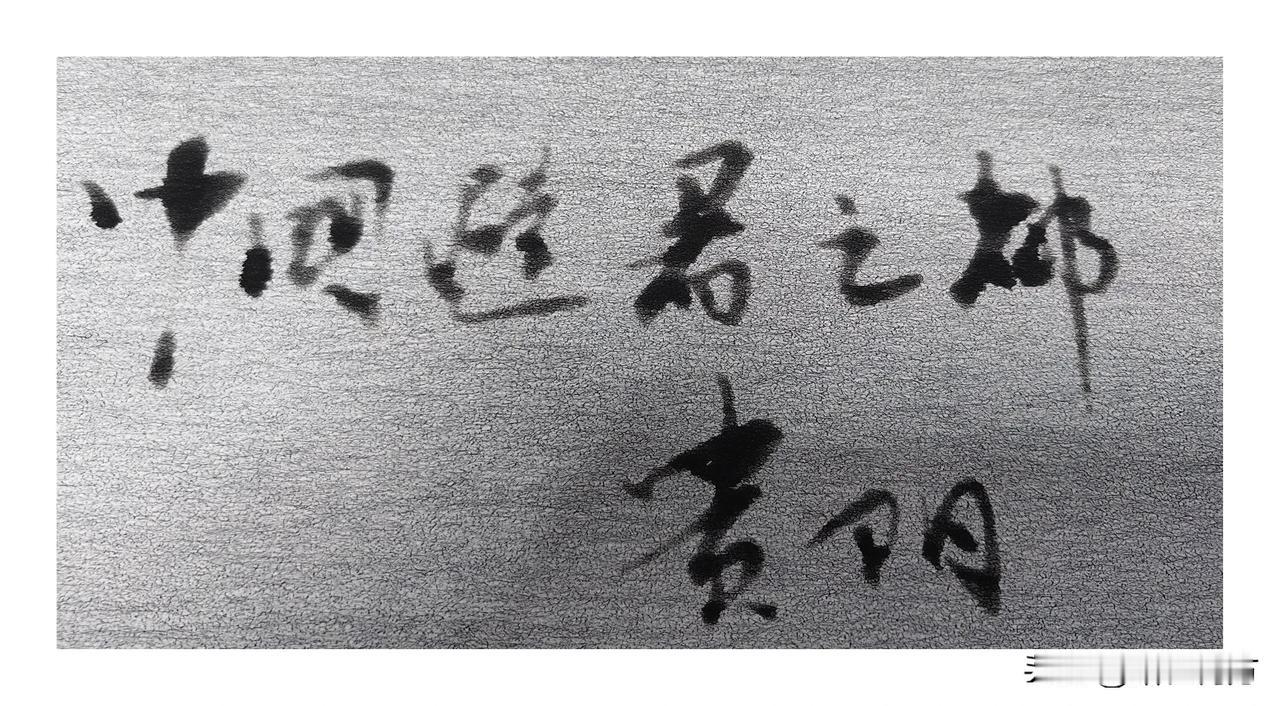 中国避暑之都
贵阳